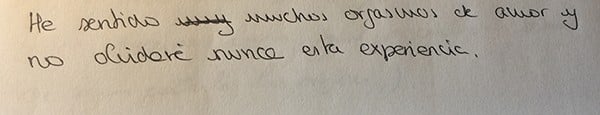 He sentido muchos orgasmos de amor y
no olvidaré nunca esta experiencia.